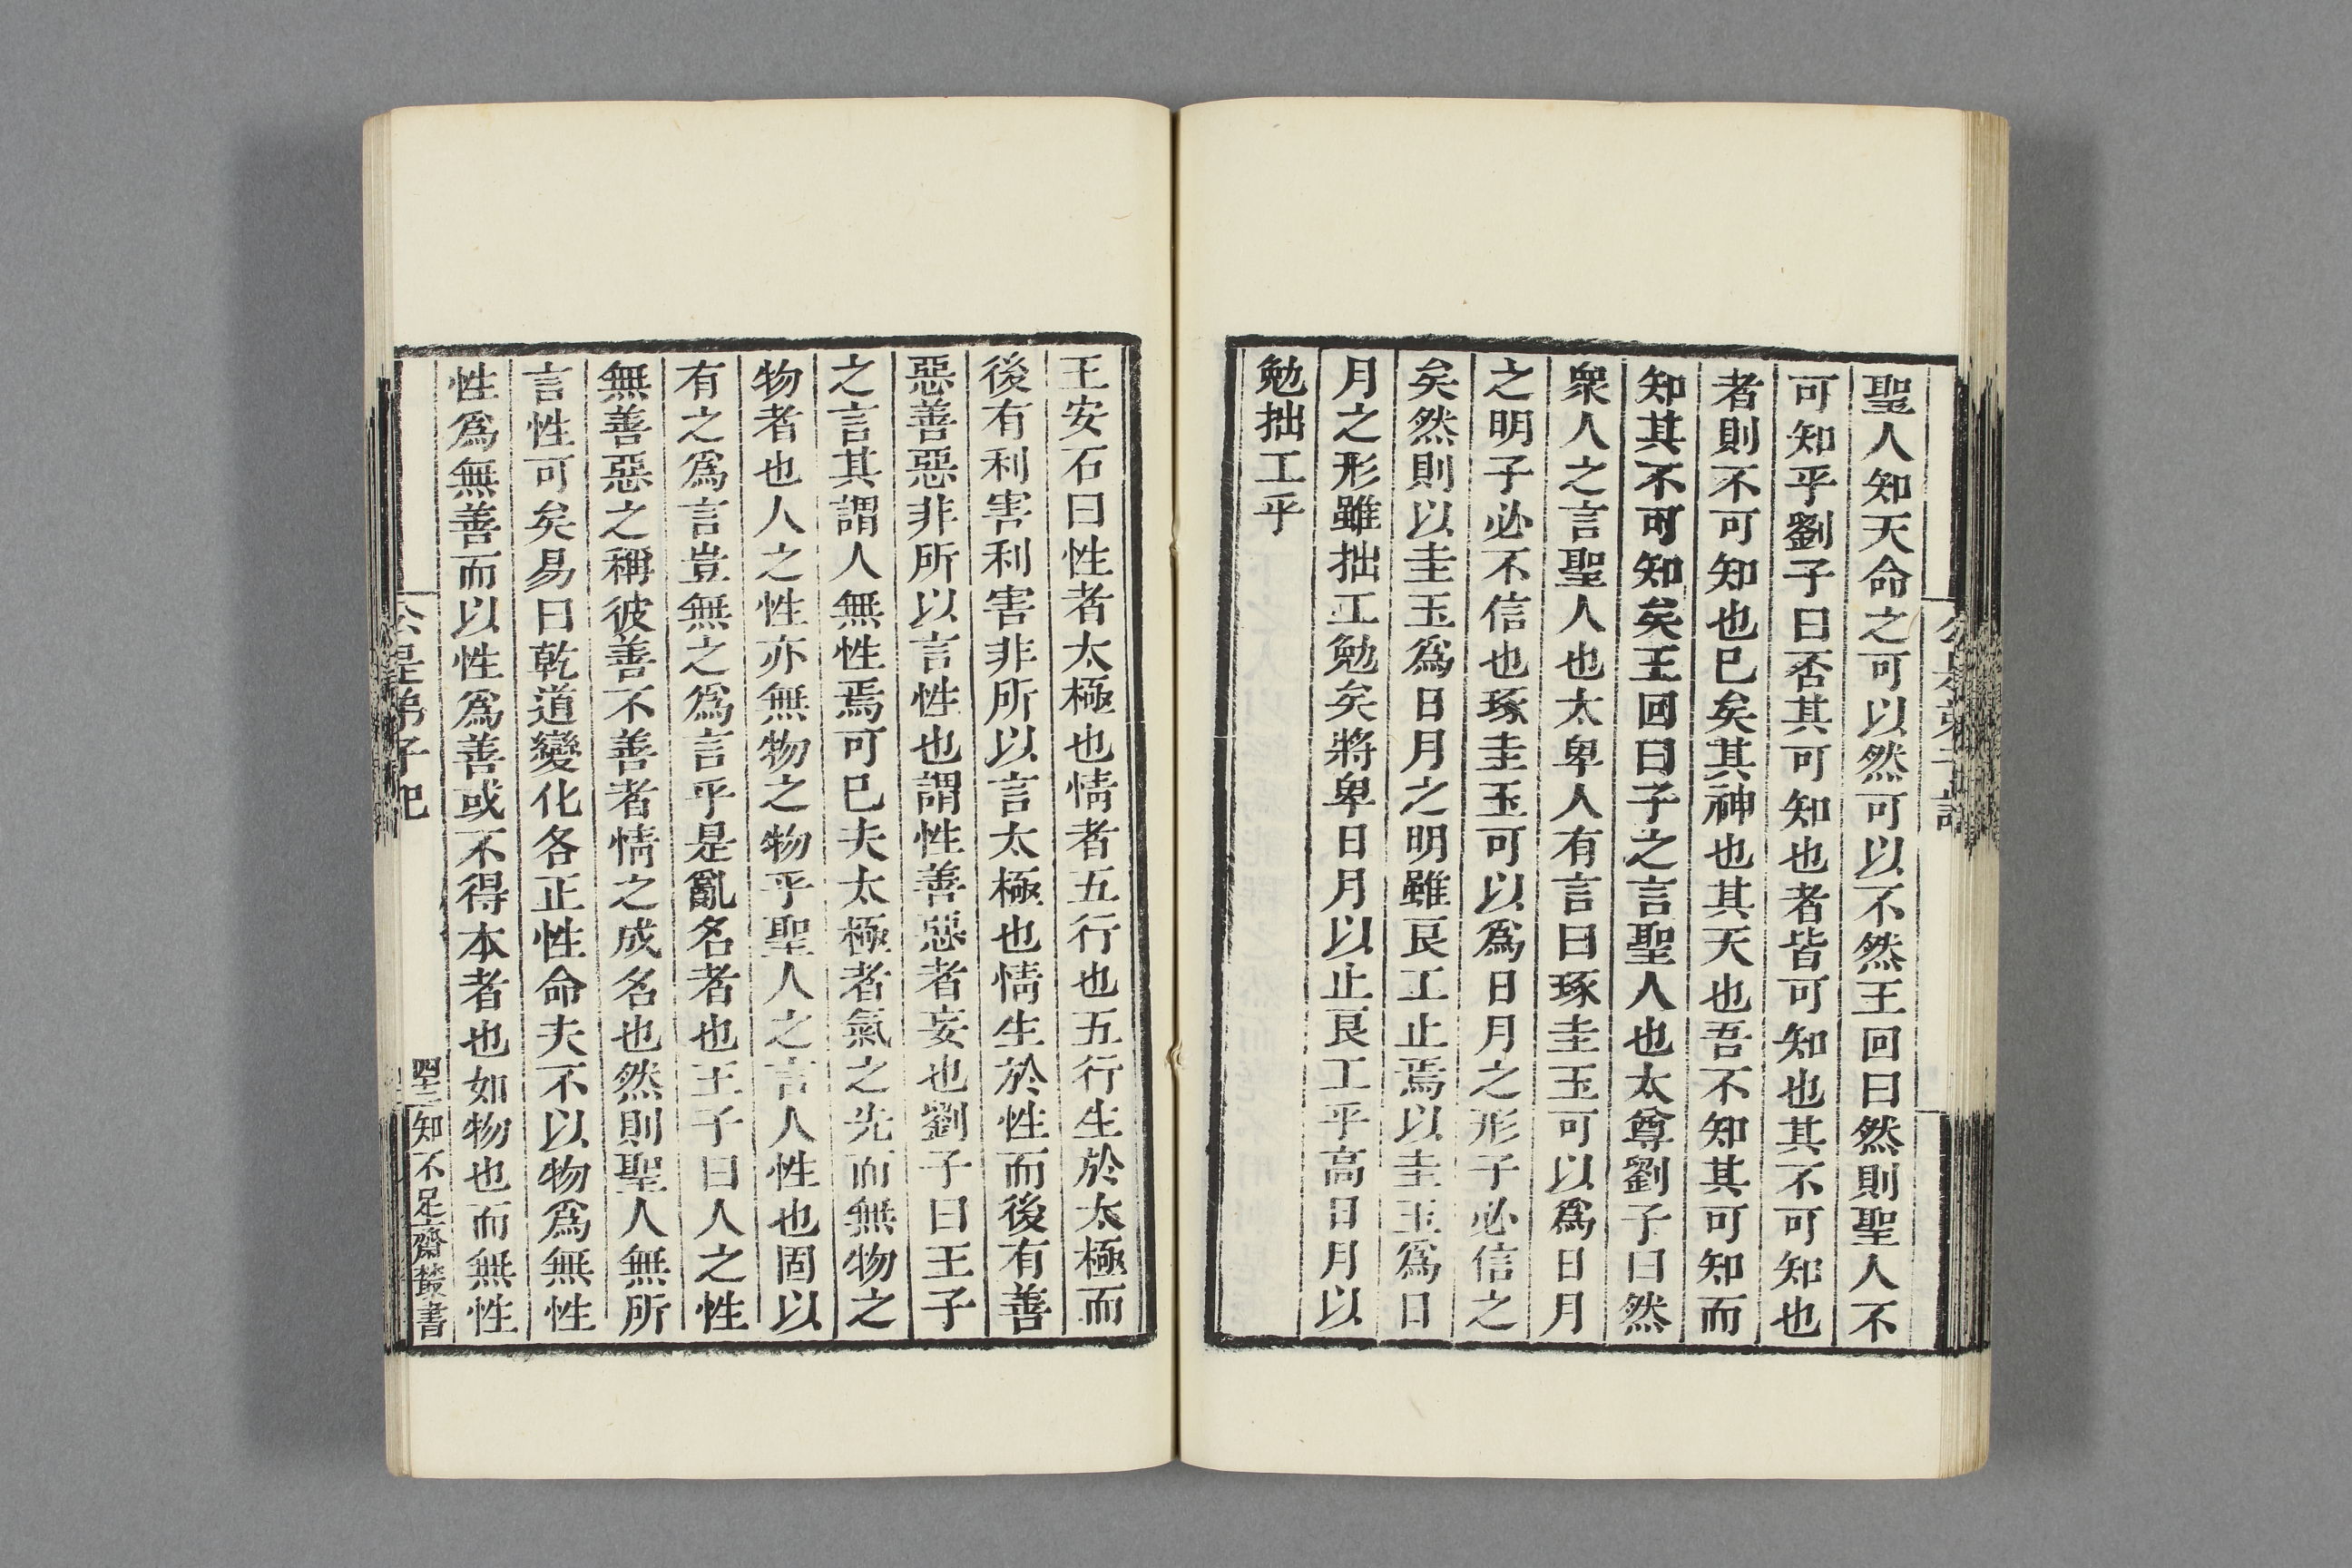 聖人知天命之可以然可以不然王回曰然則聖人不
可知乎劉子曰否其可知也者皆可知也其不可知也
者則不可知也已矣其神也其天也吾不知其可知而
知其不可知矣王回曰子之言聖人也太尊劉子曰然
衆人之言聖人也太卑人有言曰琢圭玉可以爲日月
之明子必不信也琢圭玉可以爲日月之形子必信之
矣然則以圭玉爲日月之明雖良工止焉以圭玉爲日
月之形雖拙工勉矣將卑日月以止良工乎高日月以
勉拙工乎
王安石曰性者太極也情者五行也五行生於太極而
後有利害利害非所以言太極也情生於性而後有善
惡善惡非所以言性也謂性善惡者妄也劉子曰王子
之言其謂人無性焉可已夫太極者氣之先而無物之
物者也人之性亦無物之物乎聖人之言人性也固以
有之爲言豈無之爲言乎是亂名者也王子曰人之性
無善惡之稱彼善不善者情之成名也然則聖人無所
言性可矣易曰乾道變化各正性命夫不以物爲無性
性爲無善而以性爲善或不得本者也如物也而無性
公是弟子記
知不足齋叢書